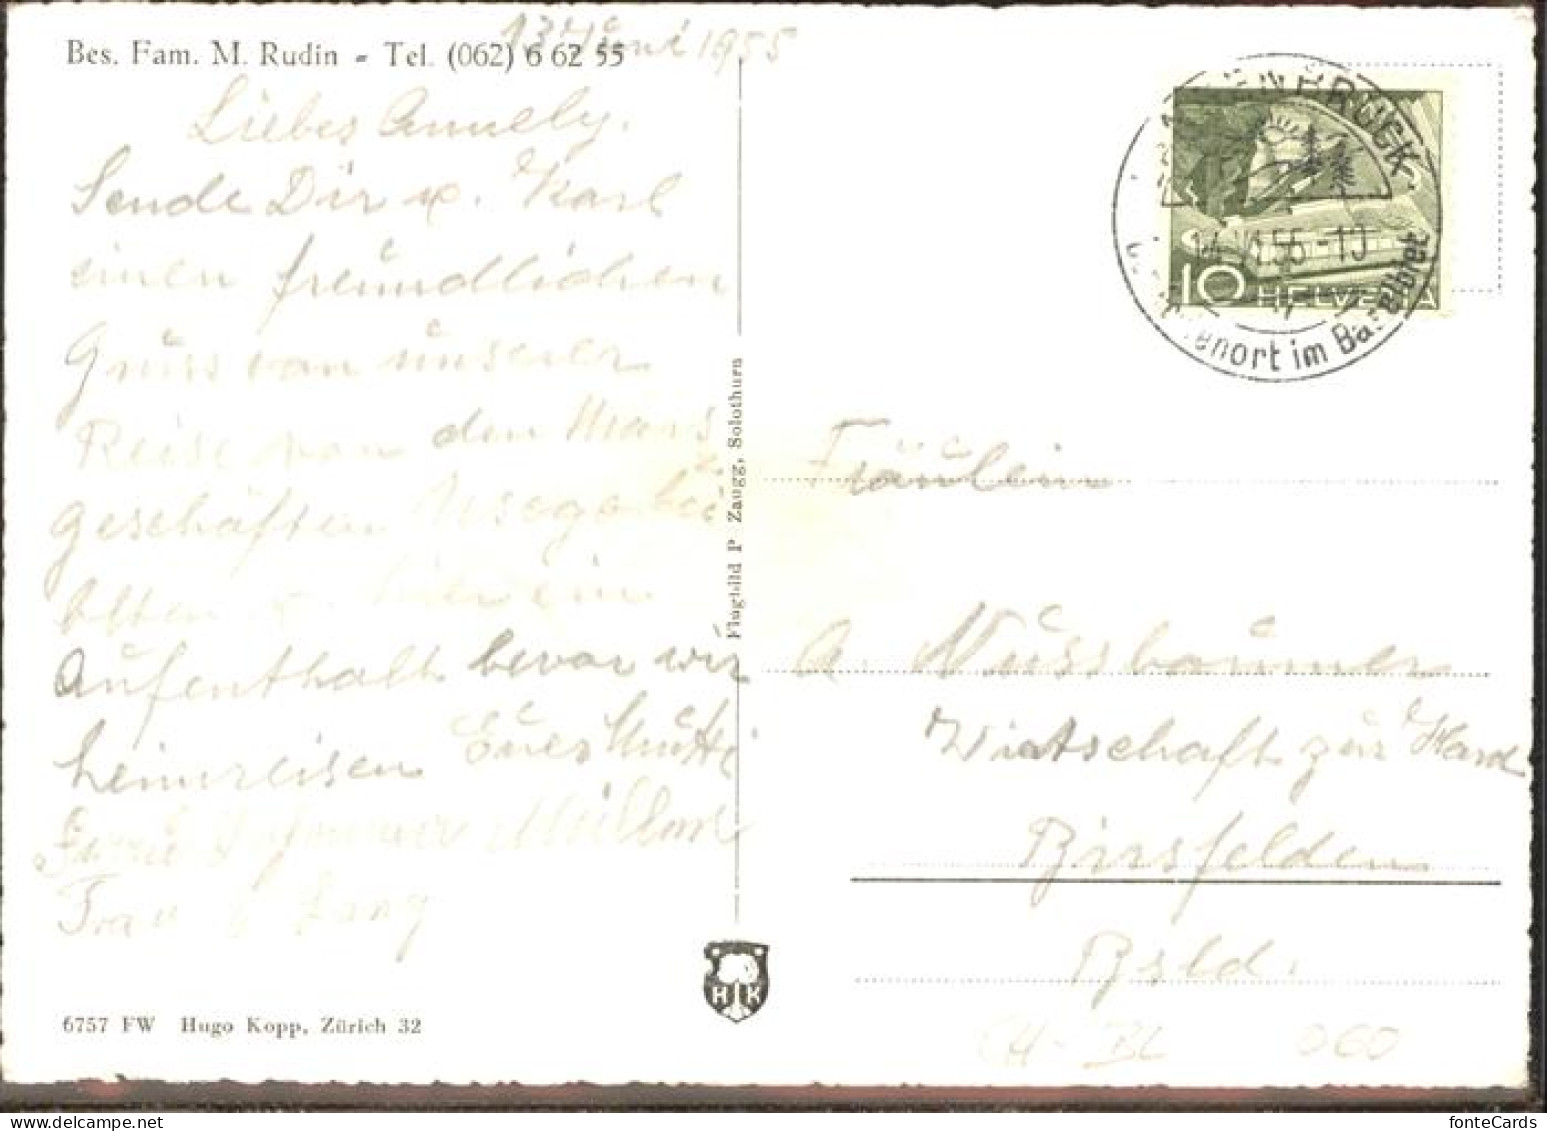 13 Juni 1955
Bes. Fam. M. Rudin - Tel. (062) 6 62 55
Liebes Annely.
Sende Dir u. Karl
einen freundlichen
Gruss von unserer
Reise von den
geschäften
Olten u. hier ein
Aufenthalt bevor wir
heimreisen Eues Mutti
Frau
Frau Lang
6757 FW Hugo Kopp, Zürich 32
Flugbild P Zaugg, Solothurn
HK
NBRUCK
14.VI.55-19
enort im Baselbiet
10 HELVETIA
Fräulein
A. Nussbaumer
Wirtschaft zur Hard
Birsfelden
Bsld.
CH-BL 060
fonteCards